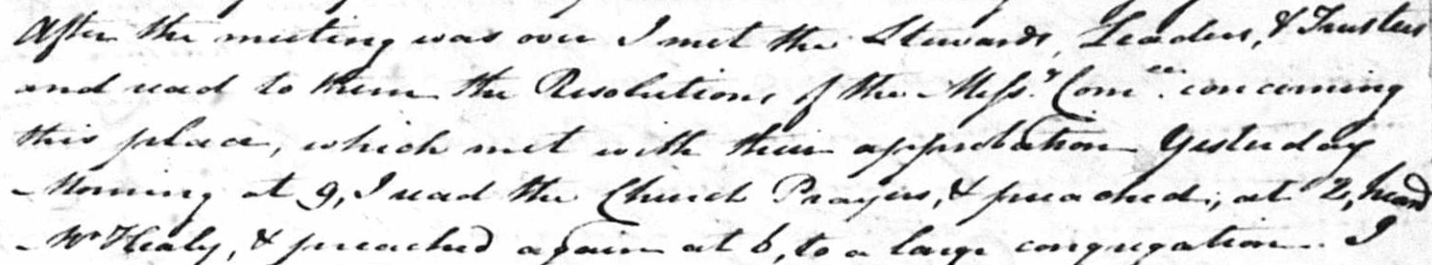 After the meeting was over I met the Stewards, Leaders, & Trustees
and read to them the Resolutions of the Miss.y Com.ee concerning
this place, which met with their approbation Yesterday
Morning at 9, I read the Church Prayers, & preached; at 2, heard
Mr Healy, & preached again at 6, to a large congregation. I